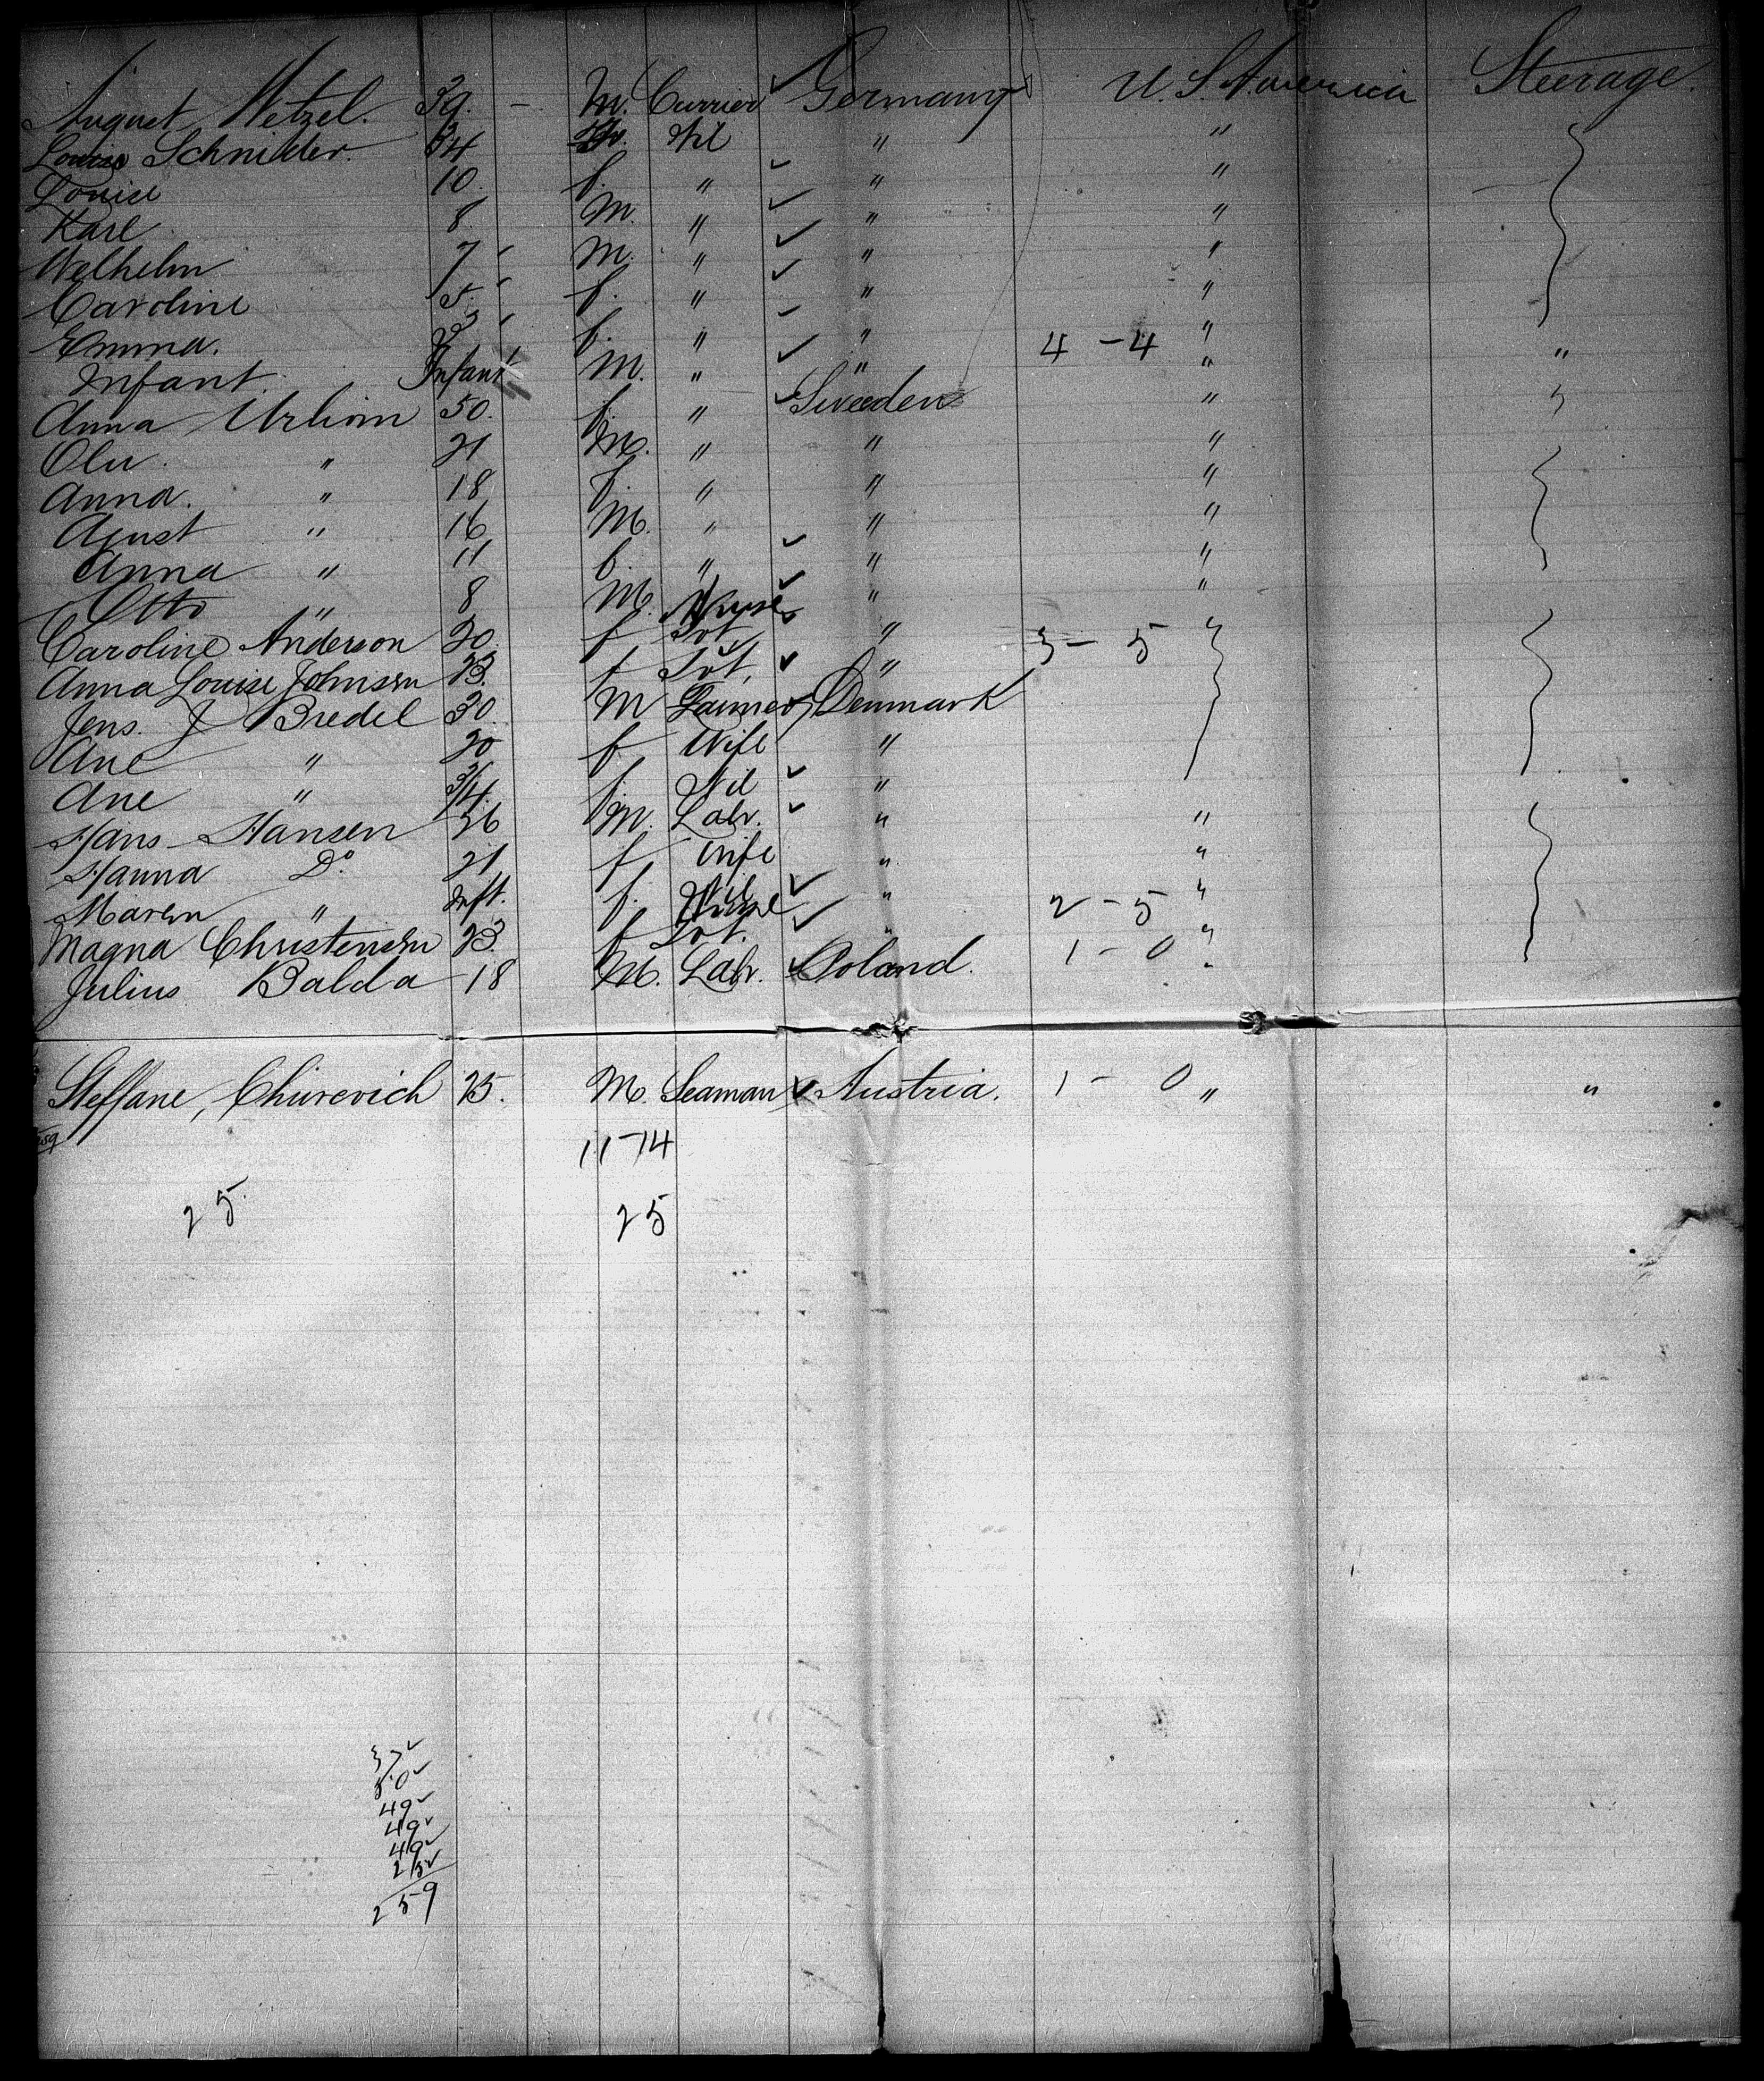 August Wetzel. 39. - M. Currier ✓ Germany U. S. America Steerage.
Louise Schnilder. 34 Nil " "
Louise 10. f. " ✓ " "
Karl 8. M. " ✓ " "
Welhelm 7 M. " ✓ " "
Caroline 5. f. " ✓ " "
Emma. 3 f. " ✓ " 4 - 4 "
Infant. Infant M. " ✓ " " "
Anna 50. f. " ✓ Sweeden " "
" 21 M. " " "
Anna. " 18 f. " " "
Agust " 16 M. " " "
Anna " 11 f. " ✓ " "
Otto " 8 M. " ✓ " "
Caroline Anderson 20 f " 3 - 5 "
Anna Louise Johnsen 23. f ✓ "
Jens. J Bredel 30. M Farmer ✓ Denmark
Ane " 20 f Wife "
Ane " 3/4 f. Nil ✓ "
Hans Hansen 26 M. Labr. ✓ " "
Hanna Do. 21 f Wife " "
Maren " Inft. f. Nil ✓ " 2 - 5 "
Magna Christensen 23. f ✓ " "
Julius Balda 18 M. Labr. ✓ Poland. 1 - 0 "
Steffane, Chiurevich 25. M. Seaman ✓ Austria. 1 - 0 " "
259
11-14
25. 25
37 ✓
50 ✓
49 ✓
49 ✓
49 ✓
25 ✓
259